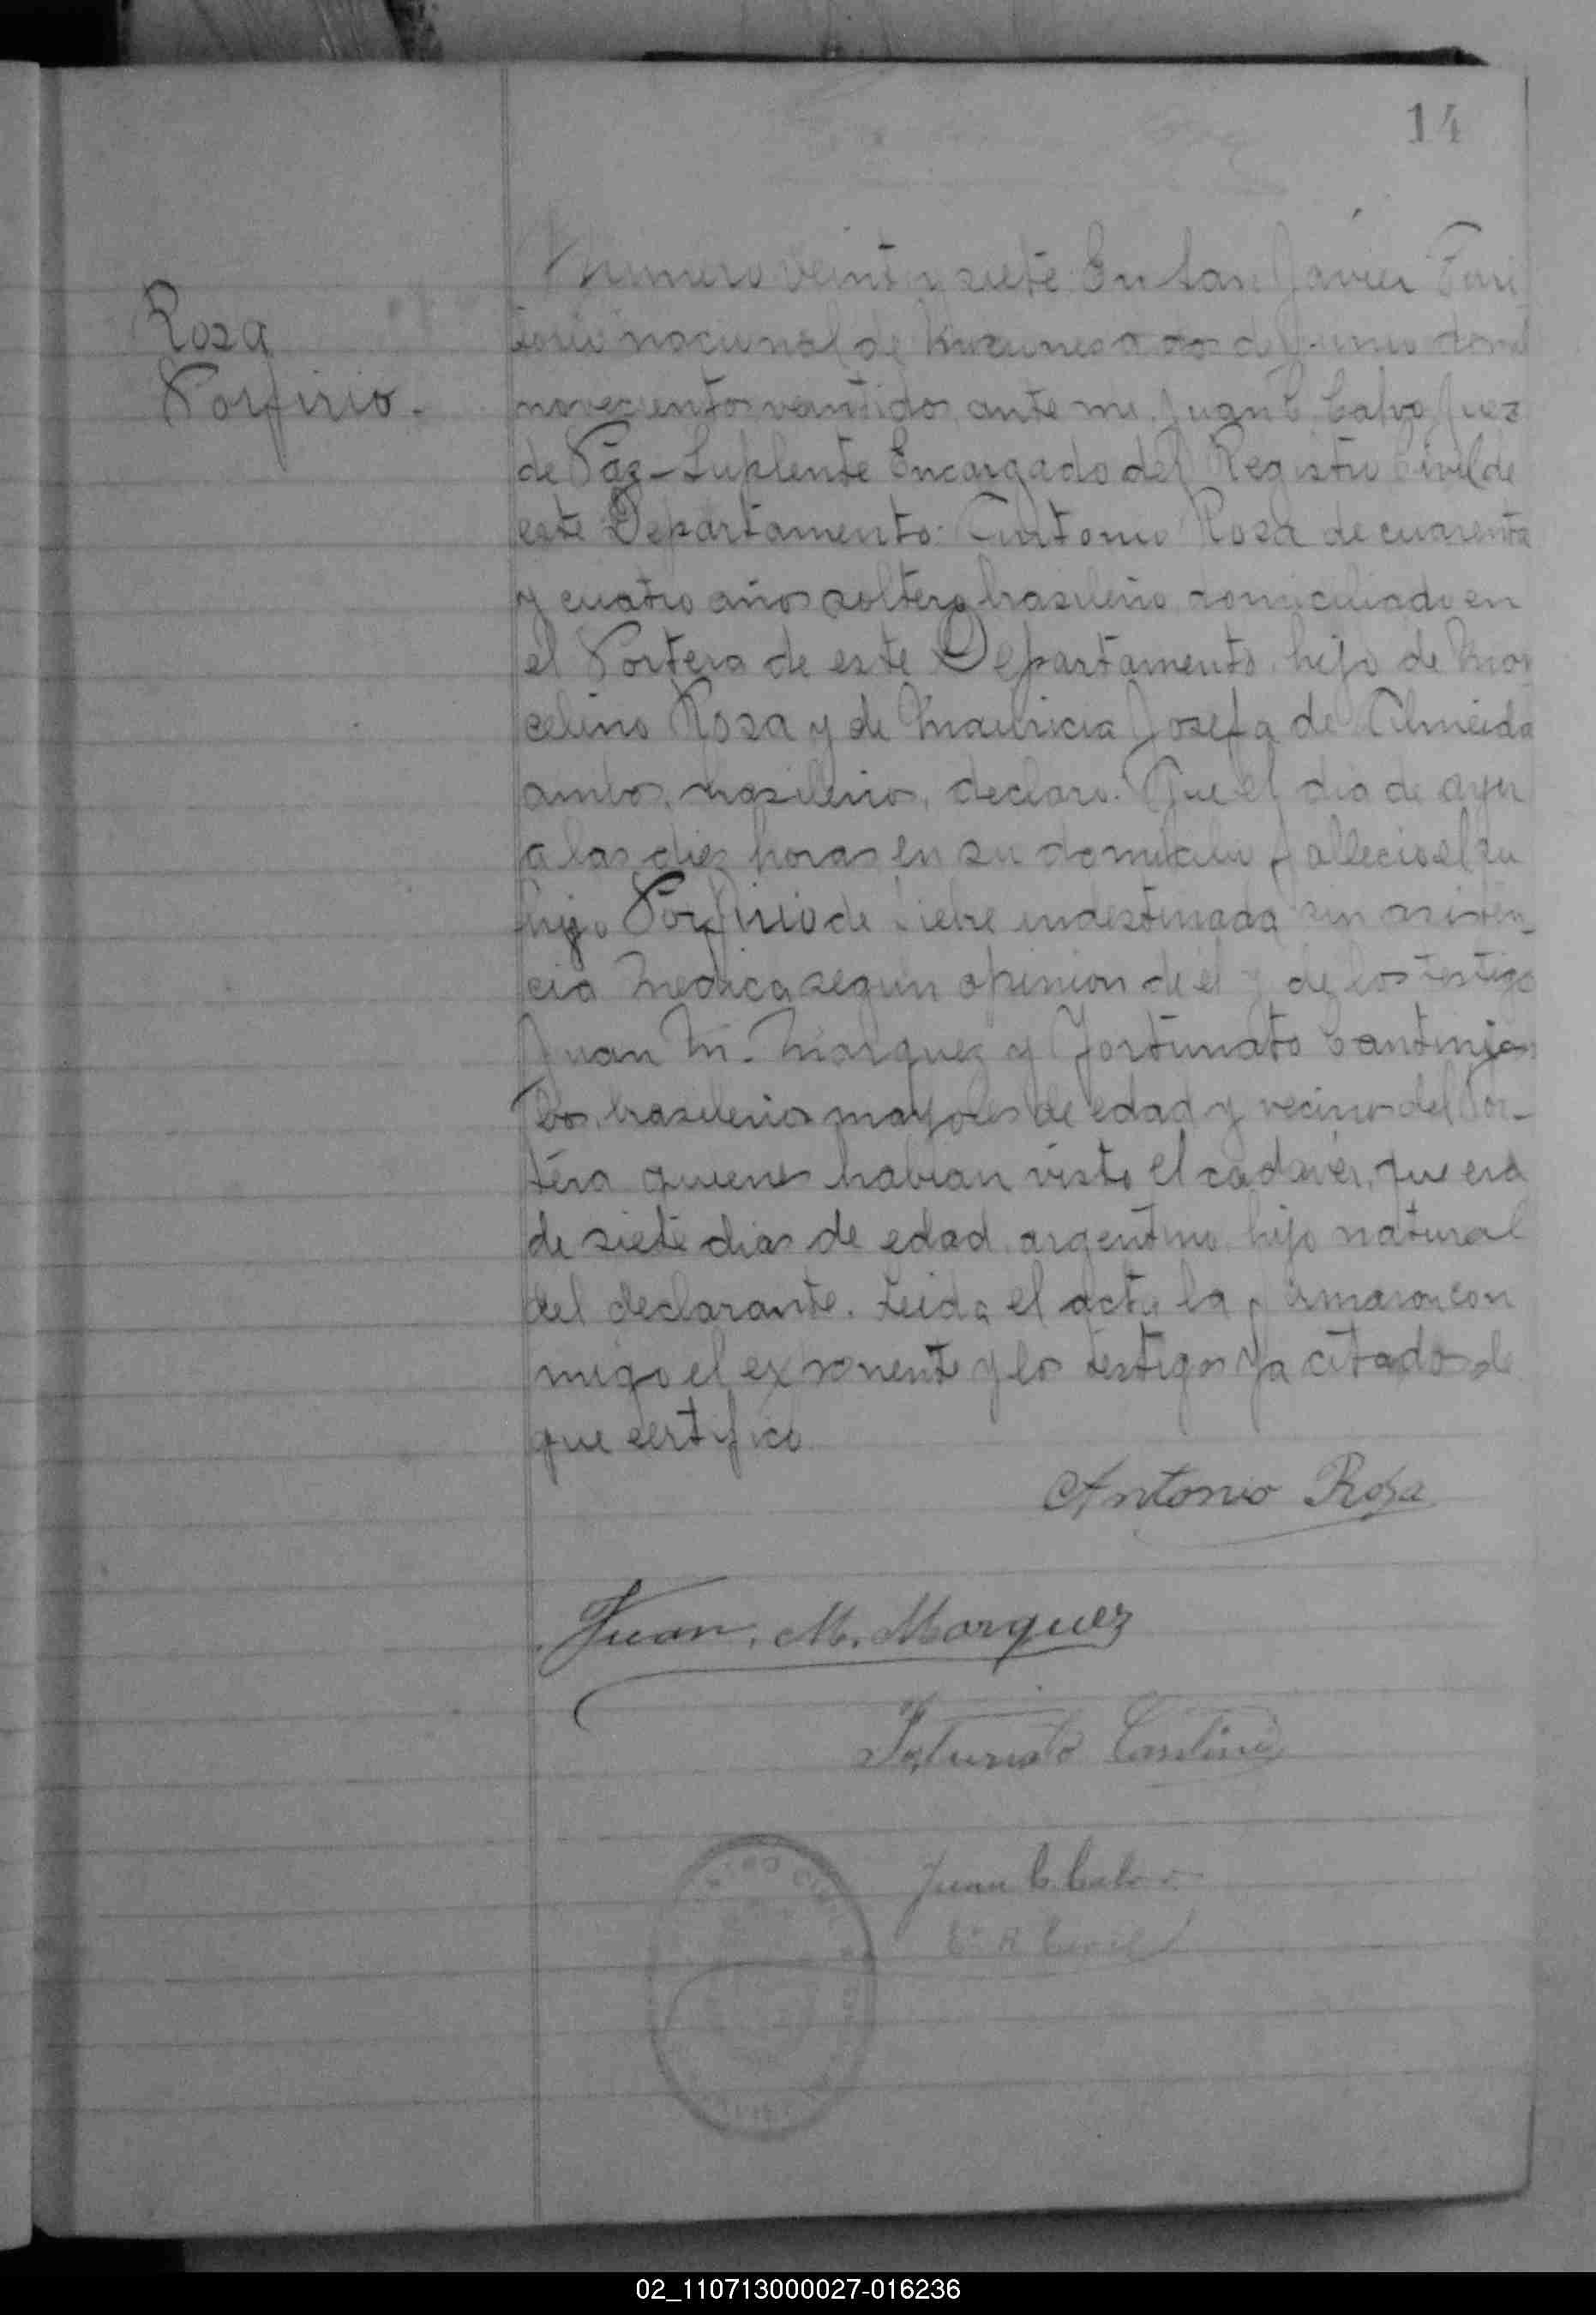 14
Rosa
Porfirio.
Numero veint y siete En San Javier Terri
torio nacional de Misiones a dos de Junio de mil
novecientos veintidos, ante mi Juan C. Calvo Juez
de Paz-Suplente Encargado del Registro Civil de
este Departamento: Antonio Rosa de cuarenta
y cuatro años soltero brasileño domiciliado en
el Portera de este Departamento, hijo de Mar
celino Rosa y de Mauricia Josefa de Almeida
ambos brasileños, declaro: Que el dia de ayer
a las diez horas en su domicilio fallecio el su
hijo Porfirio de fiebre indestinada sin asisten_
cia medica segun opinion de él y de los testigo
Juan M. Marquez y Fortunato
brasileños mayores de edad y vecinos del Por_
tera quienes habian visto el cadaver, que era
de siete dias de edad argentino hijo natural
del declarante. Leida el acta la firmaron con
migo el exponente y los testigos ya citados de
que certifico
Antonio Rosa
Juan. M. Marquez
Juan C Calvo
02_110713000027-016236